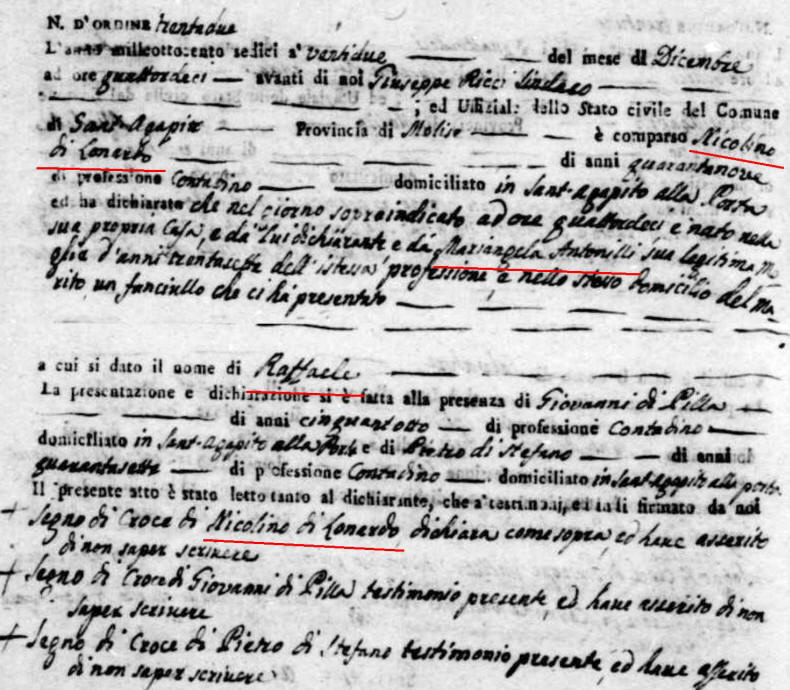 N. D'ORDINE trentadue
L'anno milleottocento sedici a' ventidue del mese di Dicembre
ad ore quattordeci avanti di noi Giuseppe Ricci Sindaco
; ed Uffiziale dello Stato civile del Comune
di Sant-Agapito Provincia di Molise è comparso Nicolino
di Lonardo di anni quarantanove
di professione Contadino domiciliato in Sant-Agapito alla Porta
ed ha dichiarato che nel giorno sopraindicato ad ore quattordeci è nato nella
sua propria Casa, e da lui dichiarante e da Mariangela Antonilli sua legitima Mo
glie d'anni trentasette dell'istessa professione, e nello stesso domicilio del ma
rito, un fanciullo che ci hà presentato
a cui si dato il nome di Raffaele
La presentazione e dichiarazione si è fatta alla presenza di Giovanni di Pilla
di anni cinquantotto di professione Contadino
domiciliato in Sant-Agapito alla Porta e di Pietro di Stefano di anni
quarantasette di professione Contadino domiciliato in Sant-Agapito alla porta
Il presente atto è stato letto tanto al dichiarante, che a' testimonj, ed indi firmato da noi
+ Segno di Croce di Nicolino di Lonardo, dichiara come sopra, ed have asserito
di non saper scrivere
+ Segno di Croce di Giovanni di Pilla testimonio presente, ed have asserito di non
saper scrivere
+ Segno di Croce di Pietro di Stefano testimonio presente, ed have asserito
di non saper scrivere